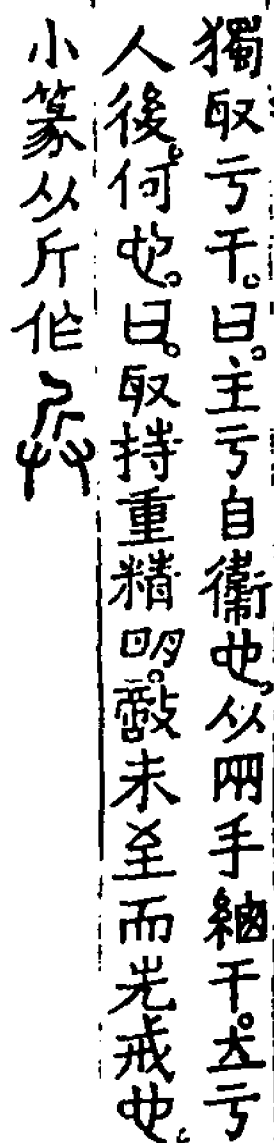 獨取亏干。曰。主亏自衞也。从兩手干。立亏
人後。何也。曰。取持重精明。敵未至而先戒也。
小篆从斤作